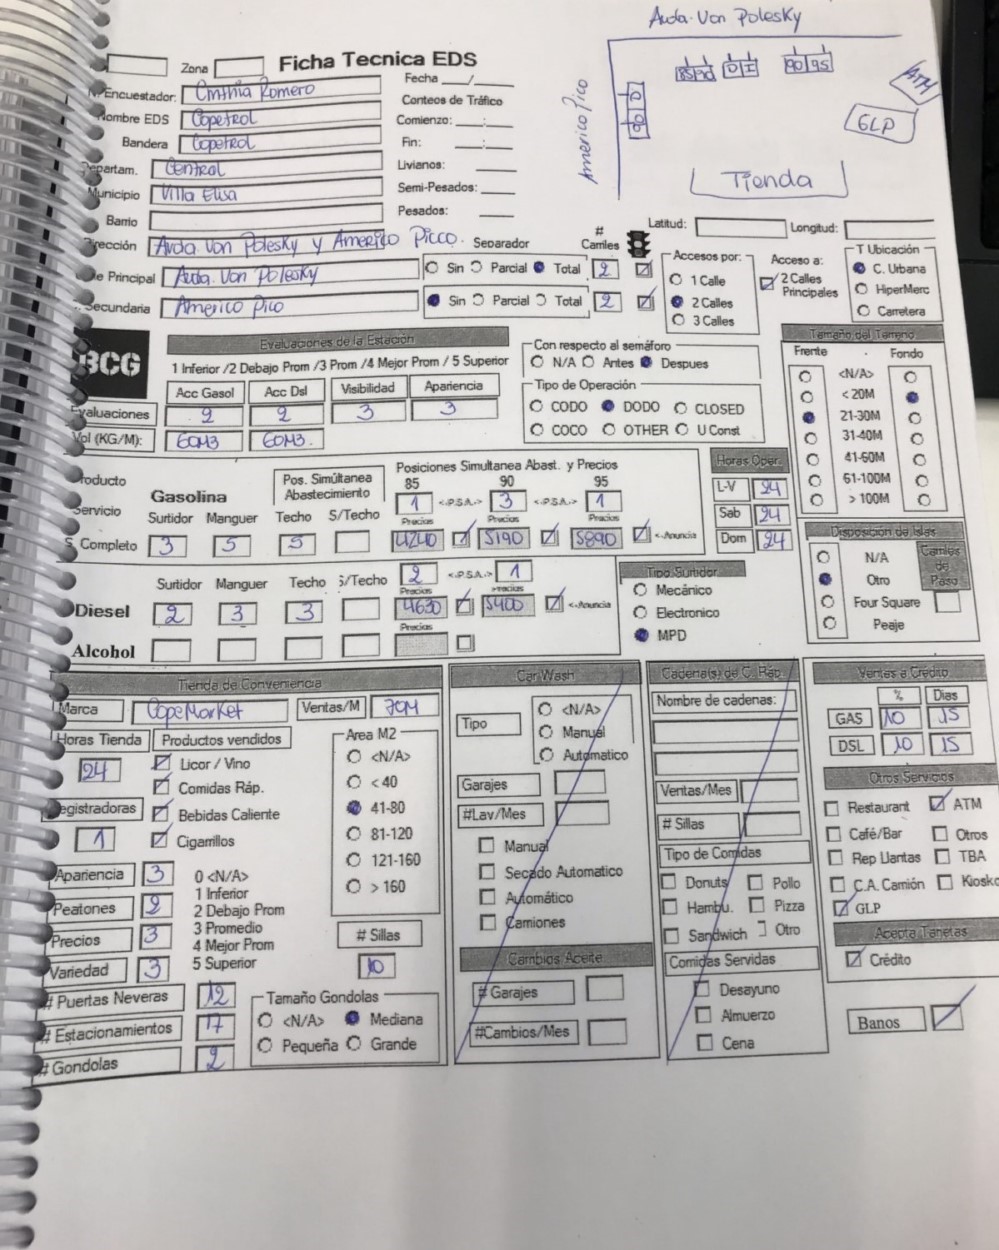 Avda. Von Polesky
Zona
Ficha Tecnica EDS
Encuestador: Cinthia Romero
Fecha __/__
Nombre EDS Copetrol
Conteos de Tráfico
Bandera Copetrol
Comienzo: __:__
Departam. Central
Fin: __:__
Municipio Villa Elisa
Livianos:
Barrio
Semi-Pesados:
Pesados:
Americo Pico
90 D
85 90 D I 90 95
ATM
GLP
Tienda
Latitud: Longitud:
Dirección Avda. Von Polesky y Americo Picco.
Separador # Carriles
Principal Avda. Von Polesky
Sin Parcial Total 2
Secundaria Americo Pico
Sin Parcial Total 2
Accesos por:
1 Calle
2 Calles
3 Calles
Acceso a:
2 Calles
Principales
T Ubicación
C. Urbana
HiperMerc
Carretera
BCG
Evaluaciones de la Estación
1 Inferior /2 Debajo Prom /3 Prom /4 Mejor Prom / 5 Superior
Acc Gasol Acc Dsl Visibilidad Apariencia
Evaluaciones 2 2 3 3
Vol (KG/M): 60M3 60M3.
Con respecto al semáforo
N/A Antes Despues
Tipo de Operación
CODO DODO CLOSED
COCO OTHER U Const
Tamaño del Terreno
Frente Fondo
<N/A>
< 20M
21-30M
31-40M
41-60M
61-100M
> 100M
Producto
Gasolina
Pos. Simúltanea
Abastecimiento
Posiciones Simultanea Abast. y Precios
85 90 95
Servicio
Surtidor Manguer Techo S/Techo
1 <-P.S.A.-> 3 <-P.S.A.-> 1
Precios Precios Precios
S. Completo 3 5 5 4240 5190 5890 <-Anuncia
Horas Oper.
L-V 24
Sab 24
Dom 24
Surtidor Manguer Techo S/Techo
2 <-P.S.A.-> 1
Precios Precios
Diesel 2 3 3 4630 5400 <-Anuncia
Precios
Alcohol
Tipo Surtidor
Mecánico
Electronico
MPD
Disposición de Islas
N/A
Otro
Four Square
Peaje
Carriles de Paso
Tienda de Conveniencia
Marca CopeMarket Ventas/M 70M
Horas Tienda Productos vendidos
24
Licor / Vino
Comidas Ráp.
Registradoras
Bebidas Caliente
1
Cigarrillos
Area M2
<N/A>
< 40
41-80
81-120
121-160
> 160
Apariencia 3
Peatones 2
Precios 3
Variedad 3
0 <N/A>
1 Inferior
2 Debajo Prom
3 Promedio
4 Mejor Prom
5 Superior
# Sillas
10
# Puertas Neveras 12
# Estacionamientos 17
# Gondolas 2
Tamaño Gondolas
<N/A> Mediana
Pequeña Grande
Car Wash
Tipo
<N/A>
Manual
Automatico
Garajes
#Lav/Mes
Manual
Secado Automatico
Automático
Camiones
Cambios Aceite
# Garajes
#Cambios/Mes
Cadena(s) de C. Ráp.
Nombre de cadenas:
Ventas/Mes
# Sillas
Tipo de Comidas
Donuts Pollo
Hambu. Pizza
Sandwich Otro
Comidas Servidas
Desayuno
Almuerzo
Cena
Ventas a Crédito
% Dias
GAS 10 15
DSL 10 15
Otros Servicios
Restaurant ATM
Café/Bar Otros
Rep Llantas TBA
C.A. Camión Kiosko
GLP
Acepta Tarjetas
Crédito
Banos